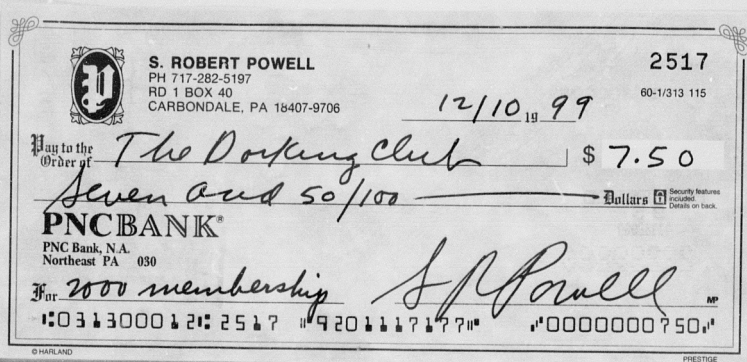 S. ROBERT POWELL
PH 717-282-5197
RD 1 BOX 40
CARBONDALE, PA 18407-9706
2517
60-1/313 115
12/10 19 99
Pay to the Order of The Dorking Club $ 7.50
Seven and 50/100 Dollars
Security features included. Details on back.
PNCBANK®
PNC Bank, N.A.
Northeast PA 030
For 2000 membership S R Powell MP
⑆031300012⑆ 2517 ⑈9201117177⑈ ⑇0000000750⑇
© HARLAND PRESTIGE